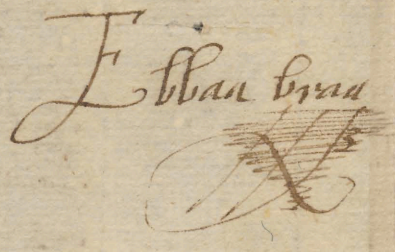 Ebbaa braa